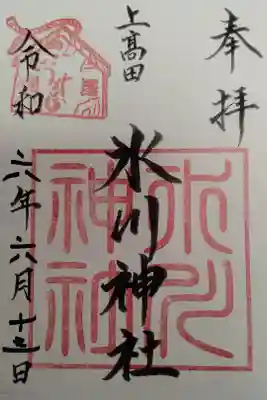 奉拝
上髙田
氷川神社
氷川
神社
令和六年六月十三日